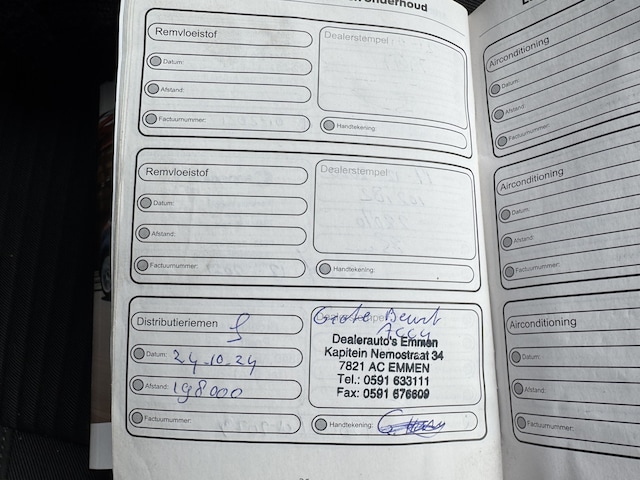 onderhoud
Remvloeistof
Dealerstempel
Datum:
Afstand:
Factuurnummer:
Handtekening:
Remvloeistof
Dealerstempel
Datum:
Afstand:
Factuurnummer:
Handtekening:
Distributieriemen
Grote Beurt
Datum: 24-10-24
Afstand: 198000
Factuurnummer:
Dealerauto's Emmen
Kapitein Nemostraat 34
7821 AC EMMEN
Tel.: 0591 633111
Fax: 0591 676609
Handtekening:
Airconditioning
Datum:
Afstand:
Factuurnummer:
Airconditioning
Datum:
Afstand:
Factuurnummer:
Airconditioning
Datum:
Afstand:
Factuurnummer: